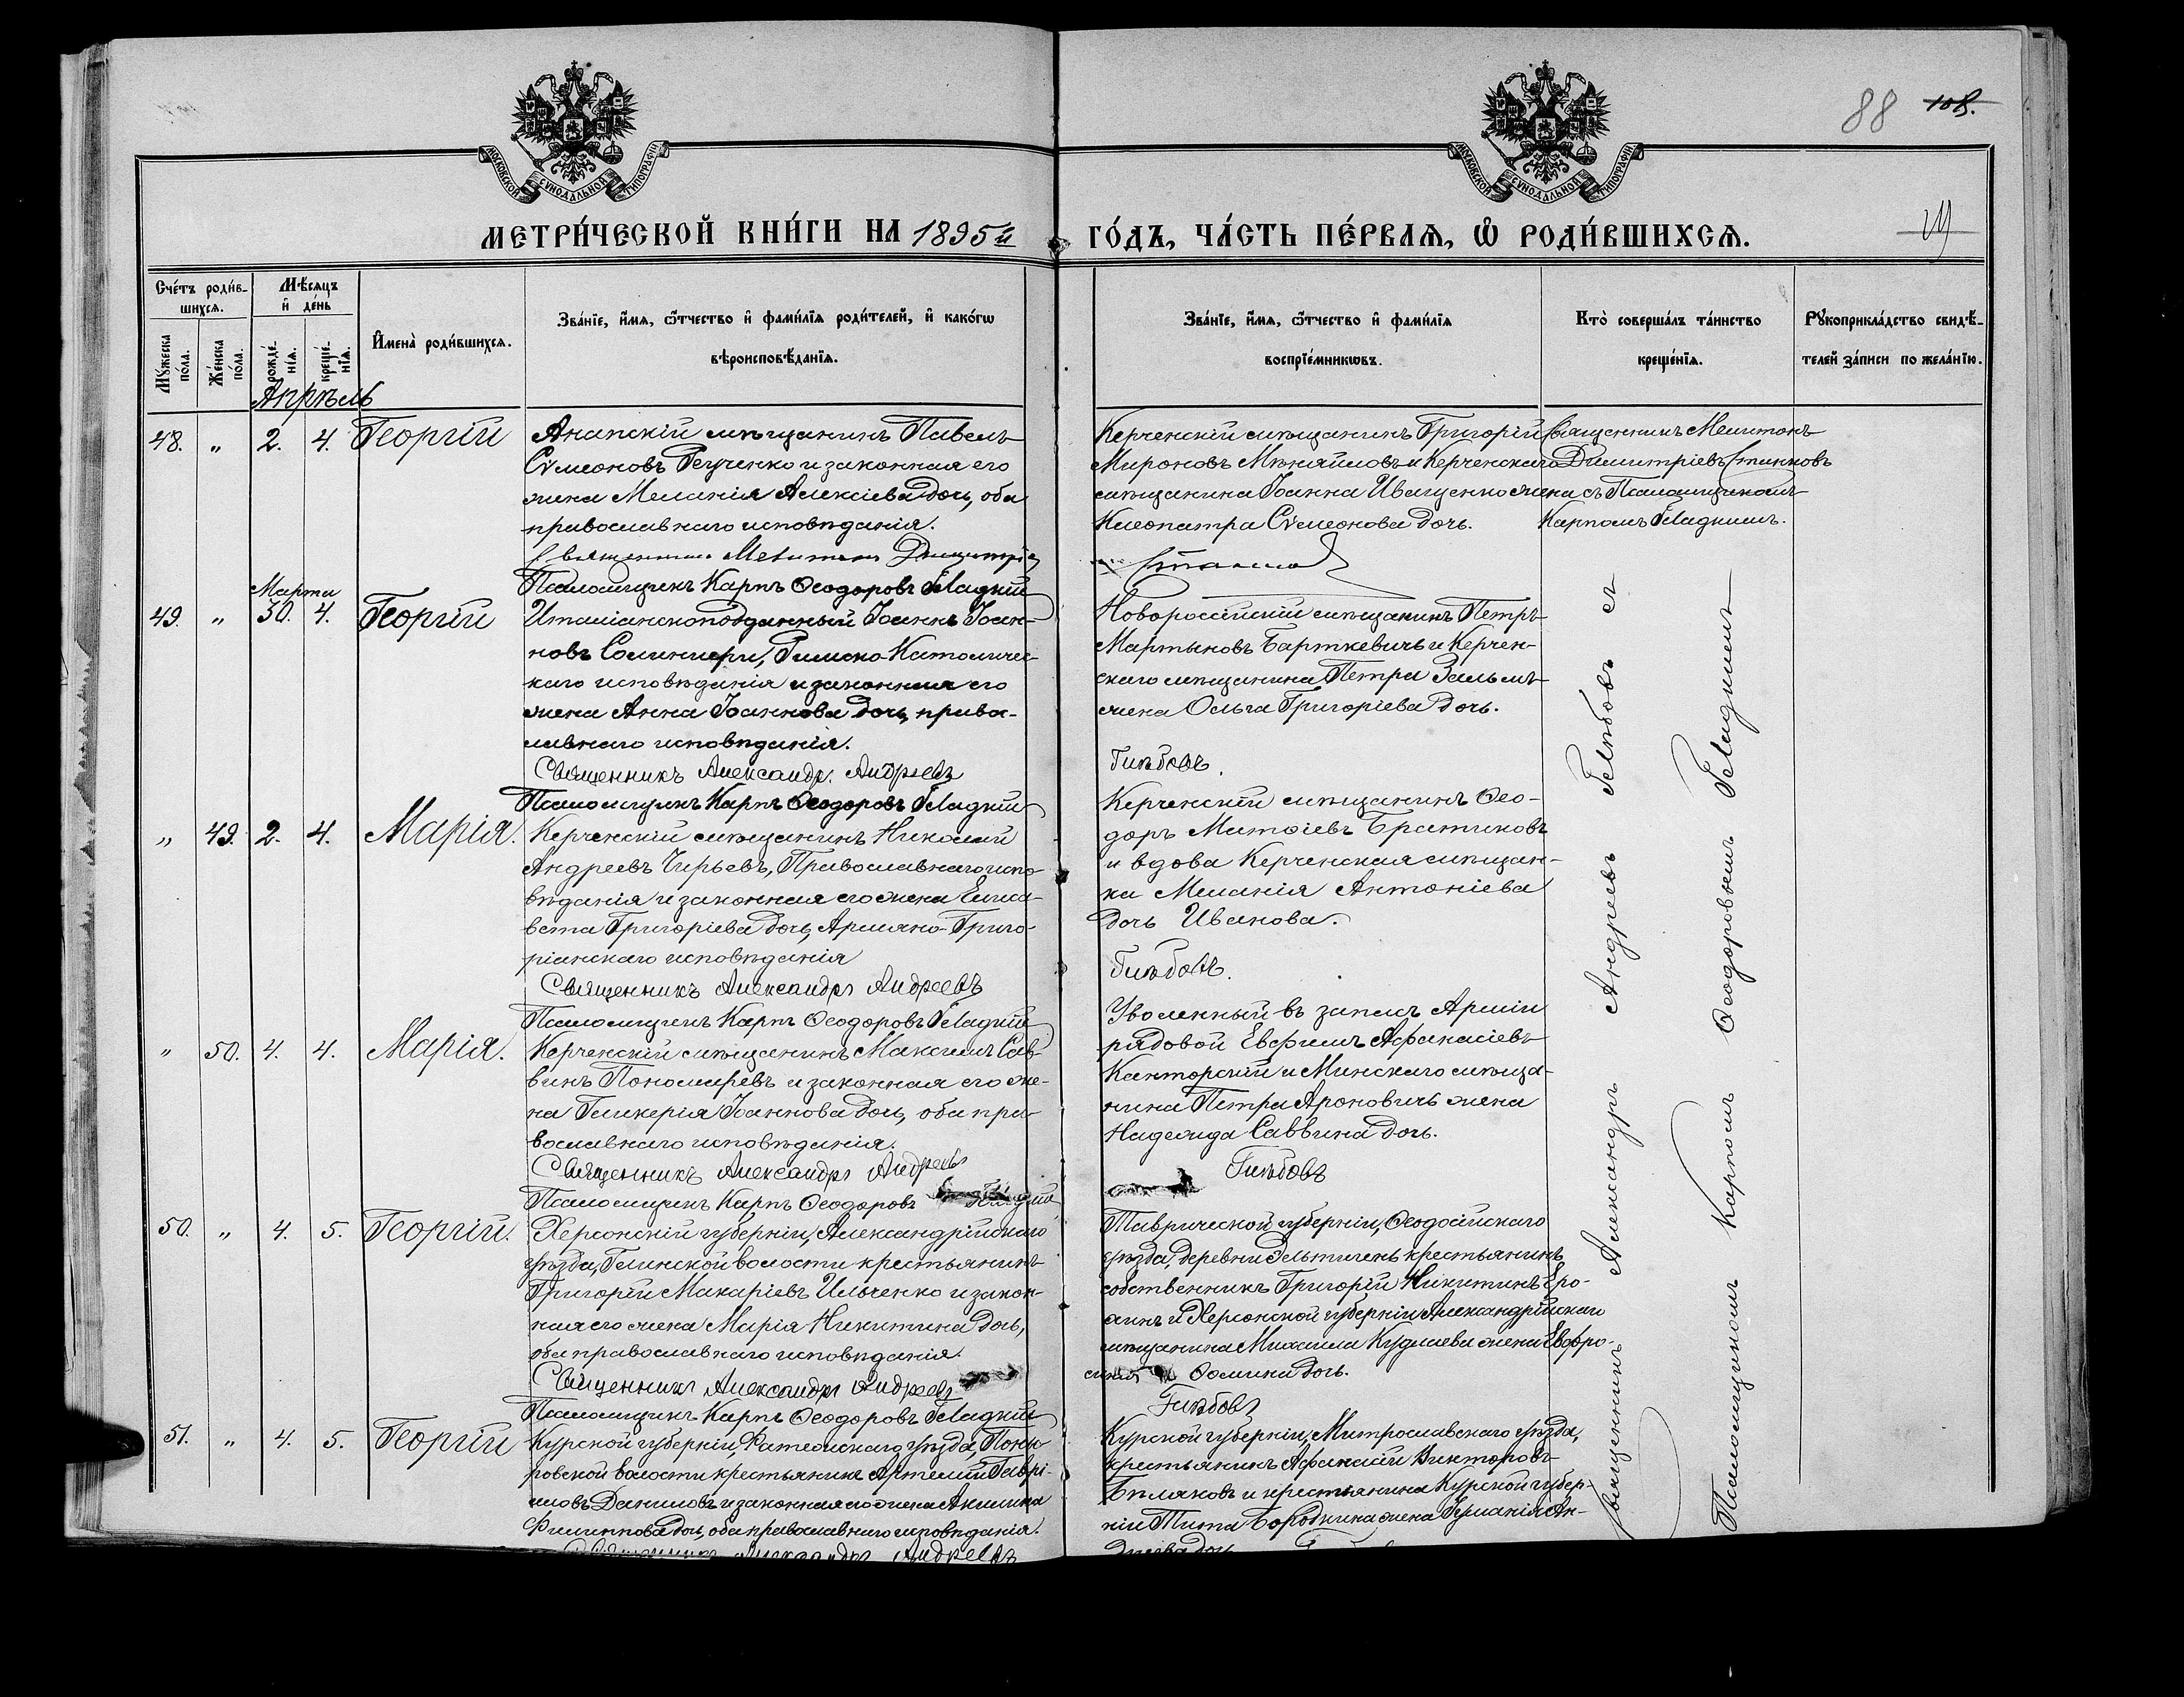 МОСКОВСКОЙ СУНОДАЛЬНОЙ ТИПОГРАФІИ
МОСКОВСКОЙ СУНОДАЛЬНОЙ ТИПОГРАФІИ
88 108.
МЕТРИ́ЧЕСКОЙ КНИ́ГИ НА 1895й ГО́ДЪ, ЧА́СТЬ ПЕ́РВАѦ, Ѽ РОДИ́ВШИХСѦ.
Сче́тъ роди́в-
шихсѧ.
Мꙋ́жеска по́ла.
Же́нска по́ла.
Мѣ́сѧцъ и҆ де́нь
рожде́-нїѧ.
креще́-нїѧ.
И҆мена̀ роди́вшихсѧ.
Зва́нїе, и҆́мѧ, ѻ҆́тчество и҆ фами́лїѧ роди́телей, и҆ како́гѡ
вѣроисповѣ́данїѧ.
Зва́нїе, и҆́мѧ, ѻ҆́тчество и҆ фами́лїѧ
воспрїе́мникѡвъ.
Кто̀ соверша́лъ та́инство
креще́нїѧ.
Рꙋкоприкла́дство свидѣ́-
телей за́писи по жела́нїю.
Апрѣль
48. „ 2. 4. Георгій
Анапскій мѣщанинъ Павелъ
Сѵмеоновъ и законная его
жена Меланія Алексіева дочь, оба
православнаго исповѣданія.
Священникъ Мелитонъ Димитріев
Псаломщикъ Карпъ Ѳеодоровъ Гладкій
Керченскій мѣщанинъ Григорій
Мироновъ и Керченскаго
мѣщанина Іоанна Иващенко жена
Клеопатра Сѵмеонова дочь.
Священникъ Мелитонъ
Димитріевъ Станковъ
съ Псаломщикомъ
Карпомъ Гладкимъ.
Марта
49. „ 30. 4. Георгій
Итальянскоподданный Іоаннъ Іоан-
новъ Римско-Католичес-
каго исповѣданія и законная его
жена Анна Іоаннова дочь, право-
славнаго исповѣданія.
Священникъ Александръ Андреевъ
Псаломщикъ Карпъ Ѳеодоровъ Гладкій
Новороссійскій мѣщанинъ Петръ
Мартыновъ Барткевичъ и Керчен-
скаго мѣщанина Петра
жена Ольга Григоріева дочь.
Глѣбовъ.
„ 49. 2. 4. Марія.
Керченскій мѣщанинъ Николай
Андреевъ Чирьевъ, Православнаго испо-
вѣданія и законная его жена Елиса-
вета Григоріева дочь, Армяно-Григо-
ріанскаго исповѣданія
Священникъ Александръ Андреевъ
Псаломщикъ Карпъ Ѳеодоровъ Гладкій
Керченскій мѣщанинъ Ѳео-
доръ Матѳіевъ Братиковъ
и вдова Керченская мѣщан-
ка Меланія Антоніева
дочь Иванова.
Глѣбовъ.
„ 50. 4. 4. Марія.
Керченскій мѣщанинъ Максимъ Сав-
винъ Пономаревъ и законная его же-
на Гликерія Іоаннова дочь, оба пра-
вославнаго исповѣданія.
Священникъ Александръ Андреевъ
Псаломщикъ Карпъ Ѳеодоровъ Гладкій
Уволенный въ запасъ Арміи
рядовой Евфимъ Аѳанасіевъ
Канторскій и Минскаго мѣща-
нина Петра Ароновичъ жена
Надежда Саввина дочь.
Глѣбовъ
50. „ 4. 5. Георгій.
Херсонскій губерніи, Александрійскаго
уѣзда, Глинской волости крестьянинъ
Григорій Макаріевъ Ильченко и закон-
ная его жена Марія Никитина дочь,
оба православнаго исповѣданія.
Священникъ Александръ Андреевъ
Псаломщикъ Карпъ Ѳеодоровъ Гладкій
Таврической губерніи, Ѳеодосійскаго
уѣзда, деревни Эльтигенъ крестьянинъ
собственникъ Григорій Никитинъ Еро-
хинъ и Херсонской губерніи Александрійскаго
мѣщанина Михаила Кудлаева жена Евфро-
синія Ѳомина дочь.
Глѣбовъ
51. „ 4. 5. Георгій
Курской губерніи, Фатежскаго уѣзда, Поны-
ровской волости крестьянинъ Артемій Гаврі-
иловъ Даниловъ и законная его жена Акилина
Филиппова дочь, оба православнаго исповѣданія.
Священникъ Александръ Андреевъ
Курской губерніи, Митрославскаго уѣзда,
крестьянинъ Аѳанасій Викторовъ
Бѣляковъ и крестьянина Курской губер-
ніи Тита Бородкина жена Ан-
дреева дочь.
Священникъ Александръ Андреевъ Глѣбовъ съ
Псаломщикомъ Карпомъ Ѳеодоровымъ Гладкимъ